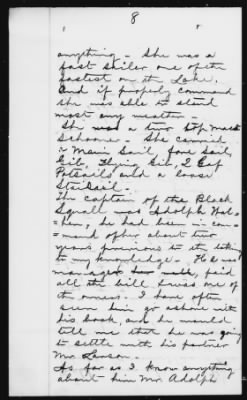 8
anything - She was a
fast sailer one of the
fastest on the Lake.
And if properly command
she was able to stand
most any weather -
She was a two top mast
Schooner - She carried
a Main Sail, fore Sail,
Gib, Flying Gib, 2 Gaf
Potsails and a loose
Staesail.
The captain of the Black
Squall was Adolph
he had been in com=
=mand of her about two
years previous to its taking
to my knowledge - He was
manager paid
all the bill was one of
the owners. I have often
seen him go ashore with
his book, and he would
tell me that he was going
to settle with his partner
Mr. Larson.
As far as I know anything
about him Mr. Adolph